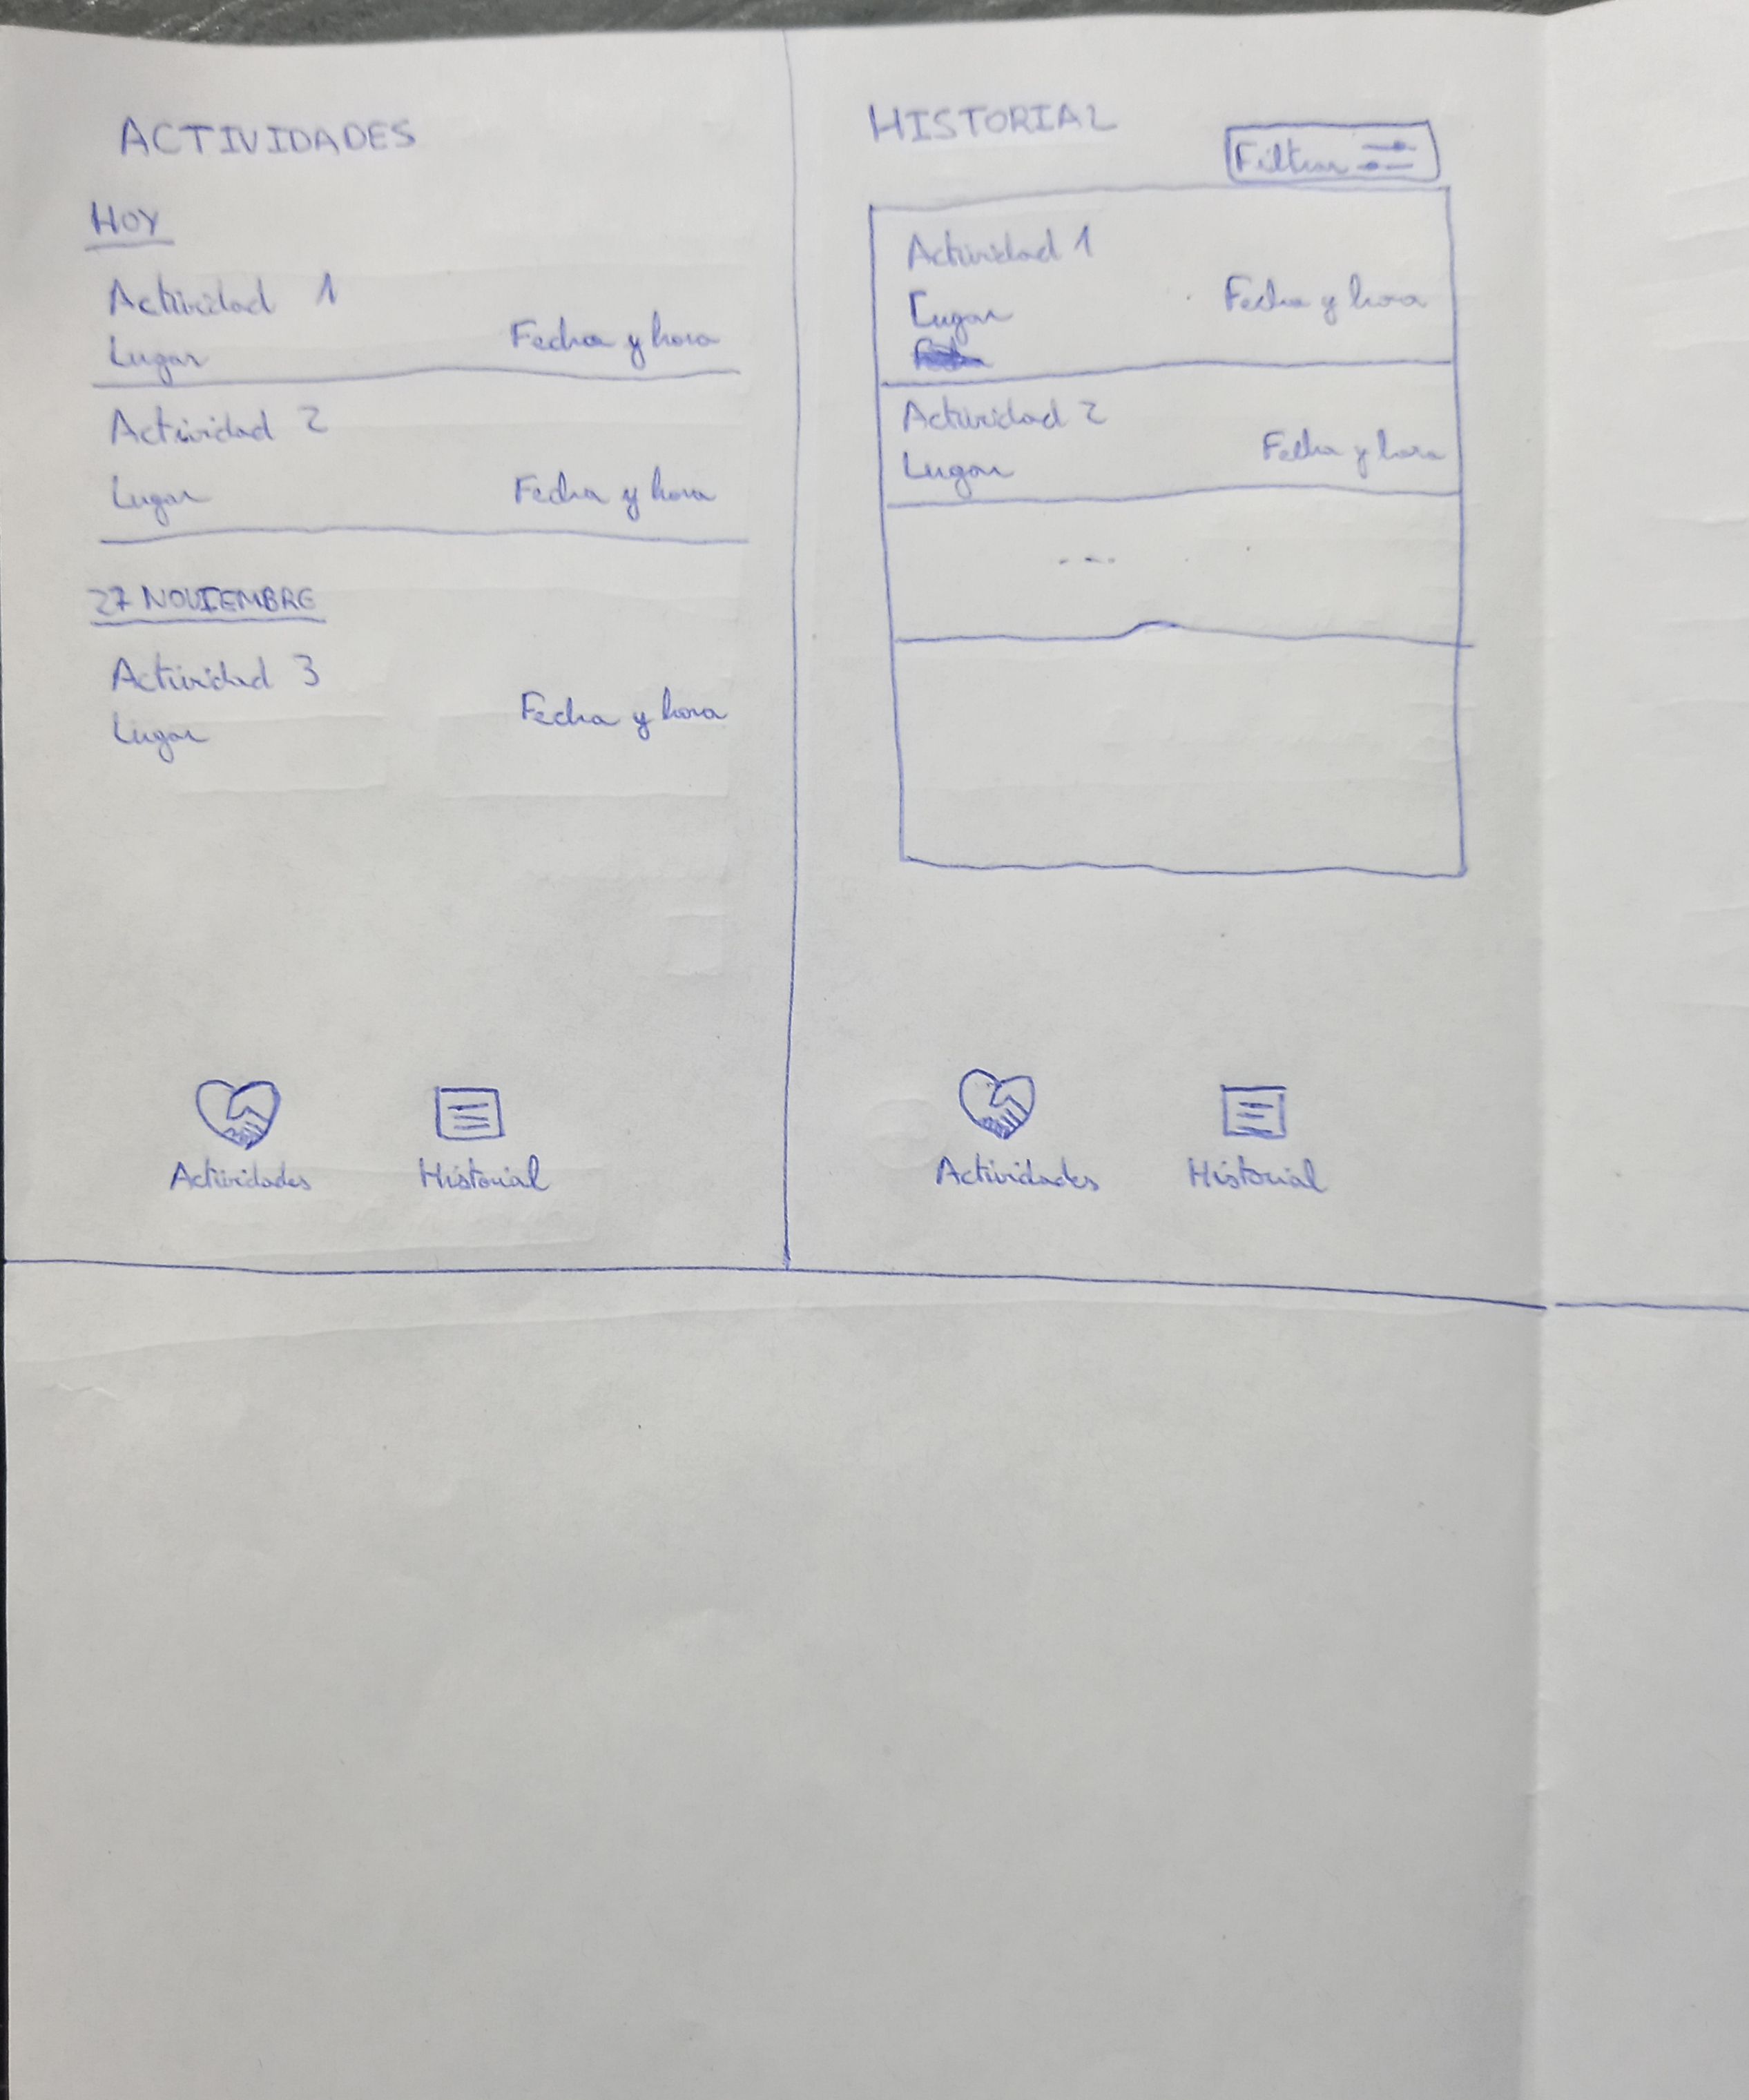 ACTIVIDADES
HOY
Actividad 1
Lugar
Fecha y hora
Actividad 2
Lugar
Fecha y hora
27 NOVIEMBRE
Actividad 3
Lugar
Fecha y hora
Actividades
Historial
HISTORIAL
Filtrar
Actividad 1
Lugar
Fecha y hora
Actividad 2
Lugar
Fecha y hora
...
Actividades
Historial